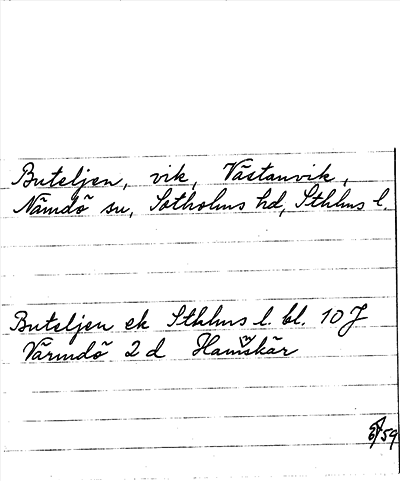 Buteljen, vik, Västanvik,
Nämdö sn, Sotholms hd, Sthlms l.
Buteljen ek Sthlms l. bl. 10 J
Värmdö 2 d Hamnskär
59